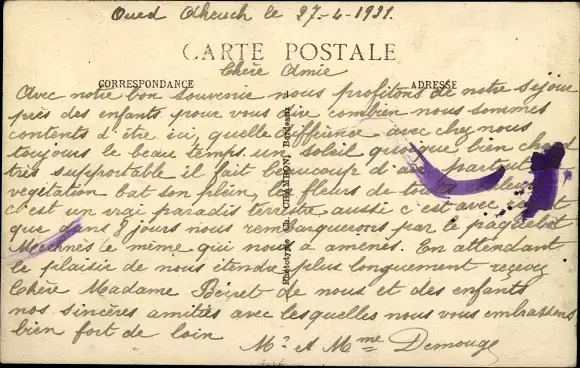 Oued Akeuch le 27-4-1931.
CARTE POSTALE
Chère Amie
CORRESPONDANCE
ADRESSE
Avec notre bon souvenir nous profitons de notre séjour
près des enfants pour vous dire combien nous sommes
contents d'être ici, quelle différence avec chez nous
toujours le beau temps un soleil quoique bien chaud
très supportable il fait beaucoup d'air partout
vegetation bat son plein, les fleurs de toutes
c'est un vrai paradis terrestre aussi c'est avec
que dans 8 jours nous rembarquerons par le paquebot
Meknès le même qui nous a amenés. En attendant
le plaisir de nous étendre plus longuement recevez
Chère Madame de nous et des enfants
nos sincères amitiés avec lesquelles nous vous embrassons
bien fort de loin
Mr et Mme Demouge
Phototypie CHAMBON, Bordeaux